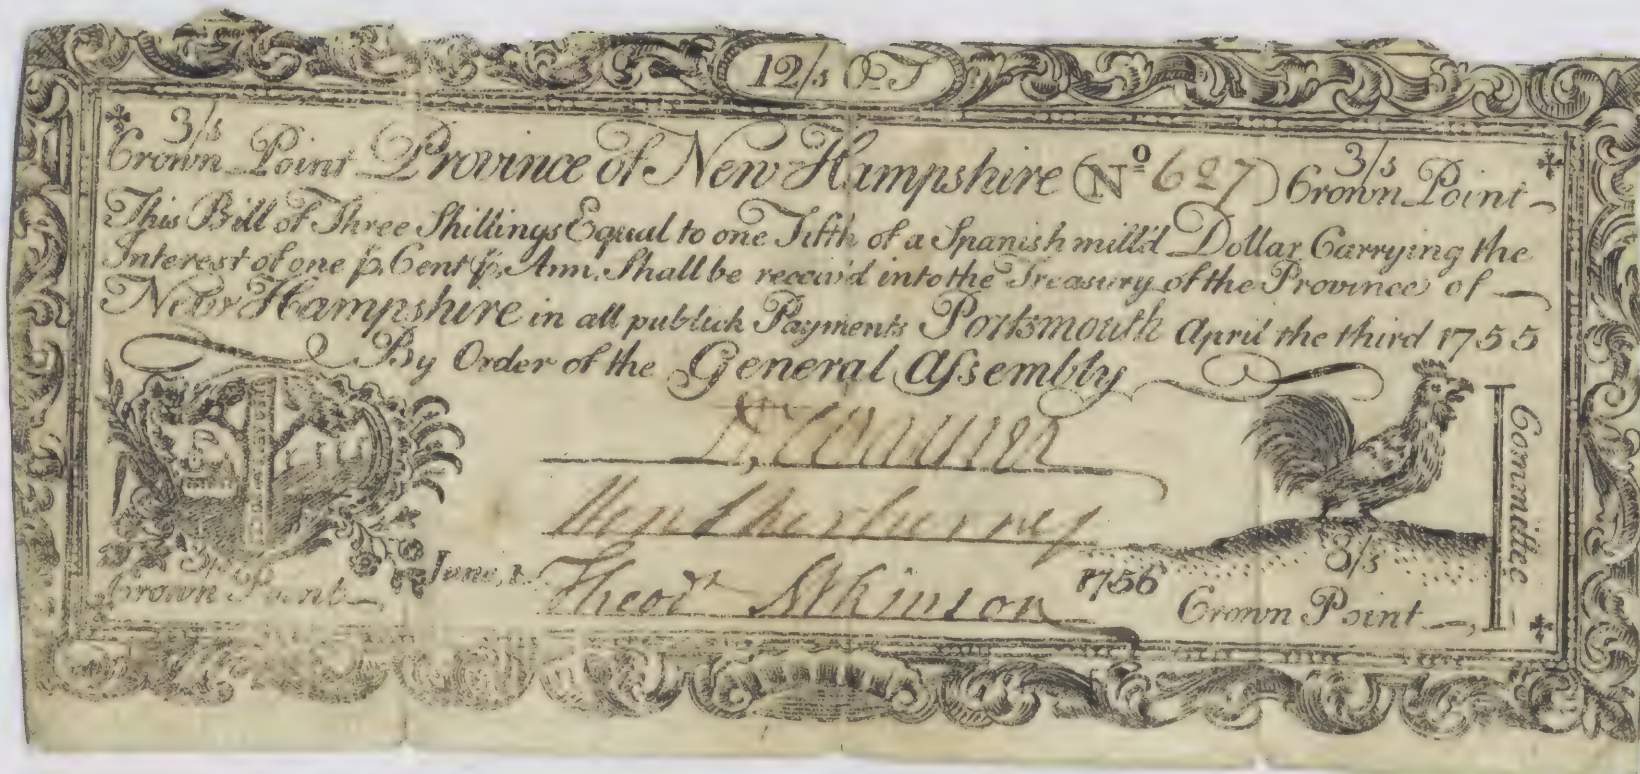 12/s O.T
3/s
Crown Point Province of New Hampshire (Nº 627) 3/s Crown Point
This Bill of Three Shillings Equal to one Fifth of a Spanish mill'd Dollar Carrying the
Interest of one p. Cent p. Ann. Shall be receiv'd into the Treasury of the Province of
New Hampshire in all publick Payments Portsmouth April the third 1755
By Order of the General Assembly
Committee
3/s
Crown Point
June 1
Theodr Atkinson
1756
3/s
Crown Point